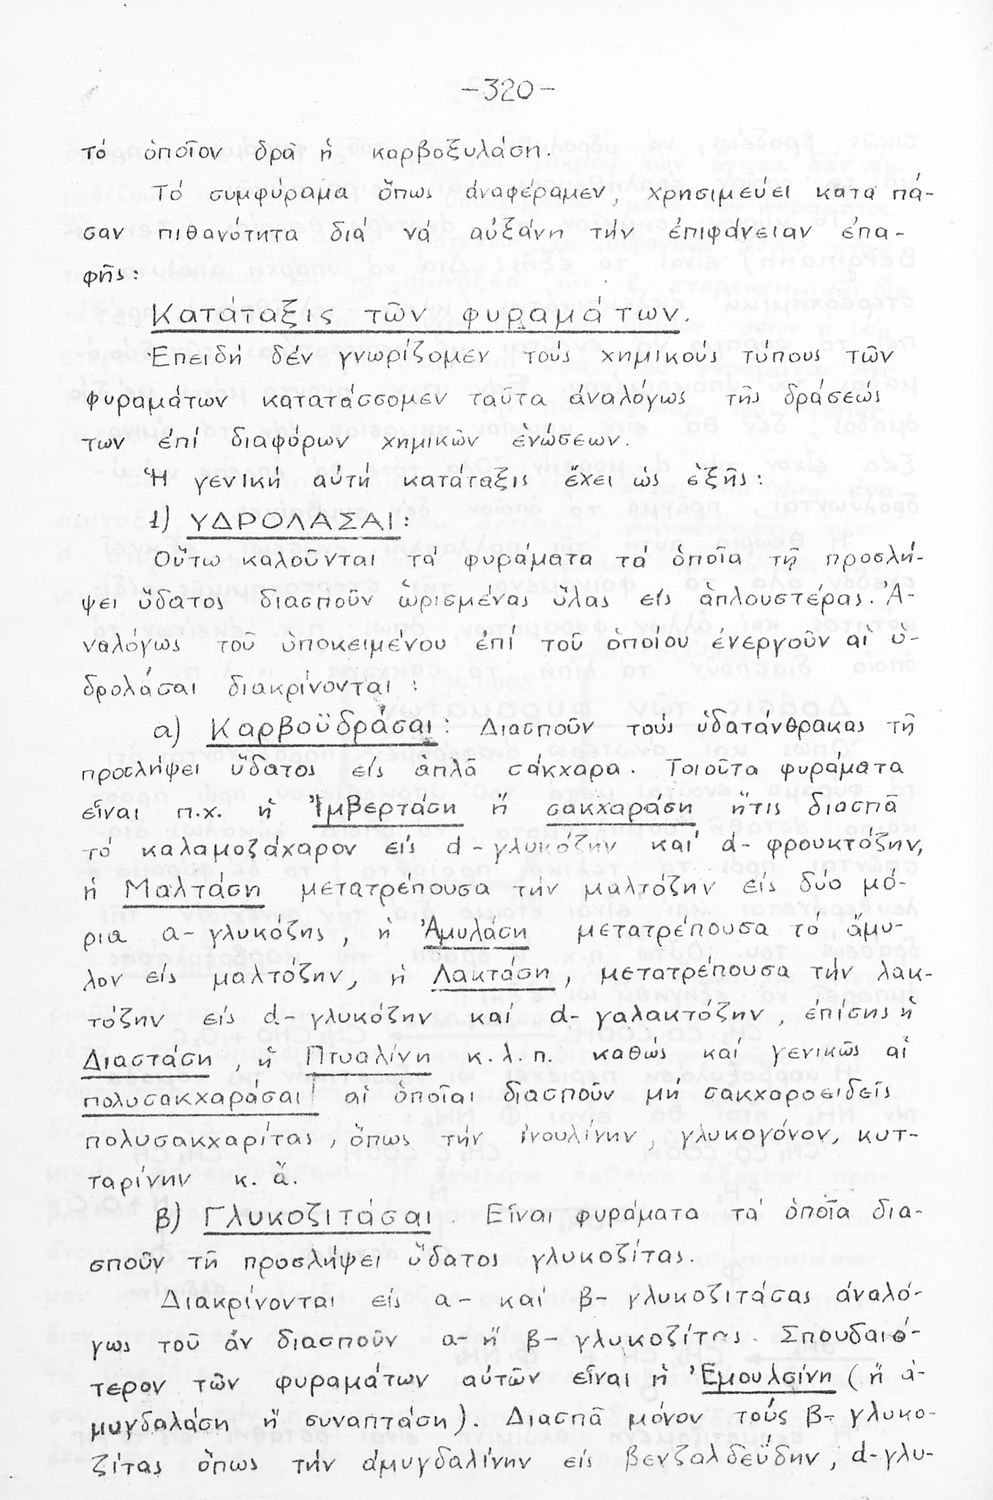 -320-
τό ὁποῖον δρᾶ ἡ καρβοξυλάση.
Τό συμφύραμα ὅπως ἀναφέραμεν, χρησιμεύει κατά πᾶ-
σαν πιθανότητα διά νά αὐξάνη τήν ἐπιφάνειαν ἐπα-
φῆς:
Κατάταξις τῶν φυραμάτων.
Ἐπειδή δέν γνωρίζομεν τούς χημικούς τύπους τῶν
φυραμάτων κατατάσσομεν ταῦτα ἀναλόγως τῆς δράσεώς
των ἐπί διαφόρων χημικῶν ἑνώσεων.
Ἡ γενική αὐτή κατάταξις ἔχει ὡς ἑξῆς:
1) ΥΔΡΟΛΑΣΑΙ:
Οὕτω καλοῦνται τά φυράματα τά ὁποῖα τῇ προσλή-
ψει ὕδατος διασποῦν ὡρισμένας ὕλας εἰς ἁπλουστέρας. Ἀ-
ναλόγως τοῦ ὑποκειμένου ἐπί τοῦ ὁποίου ἐνεργοῦν αἱ ὑ-
δρολάσαι διακρίνονται:
α) Καρβοϋδράσαι: Διασποῦν τούς ὑδατάνθρακας τῇ
προσλήψει ὕδατος εἰς ἁπλᾶ σάκχαρα. Τοιοῦτα φυράματα
εἶναι π.χ. ἡ Ἰμβερτάση ἤ σακχαράση ἥτις διασπᾶ
τό καλαμοζάχαρον εἰς d-γλυκόζην καί d-φρουκτόζην,
ἡ Μαλτάση μετατρέπουσα τήν μαλτόζην εἰς δύο μό-
ρια α-γλυκόζης, ἡ Ἀμυλάση μετατρέπουσα τό ἄμυ-
λον εἰς μαλτόζην, ἡ Λακτάση, μετατρέπουσα τήν λακ-
τόζην εἰς d-γλυκόζην καί d-γαλακτόζην, ἐπίσης ἡ
Διαστάση, ἡ Πτυαλίνη κ.λ.π. καθώς καί γενικῶς αἱ
πολυσακχαράσαι αἱ ὁποῖαι διασποῦν μή σακχαροειδεῖς
πολυσακχαρίτας, ὅπως τήν ἰνουλίνην, γλυκογόνον, κυτ-
ταρίνην κ.ἄ.
β) Γλυκοζιτάσαι. Εἶναι φυράματα τά ὁποῖα δια-
σποῦν τῇ προσλήψει ὕδατος γλυκοζίτας.
Διακρίνονται εἰς α- καί β- γλυκοζιτάσας ἀναλό-
γως τοῦ ἄν διασποῦν α- ἤ β- γλυκοζίτας. Σπουδαιό-
τερον τῶν φυραμάτων αὐτῶν εἶναι ἡ Ἐμουλσίνη (ἤ ἀ-
μυγδαλάση ἤ συναπτάση). Διασπᾶ μόνον τούς β- γλυκο-
ζίτας ὅπως τήν ἀμυγδαλίνην εἰς βενζαλδεΰδην, d-γλυ-